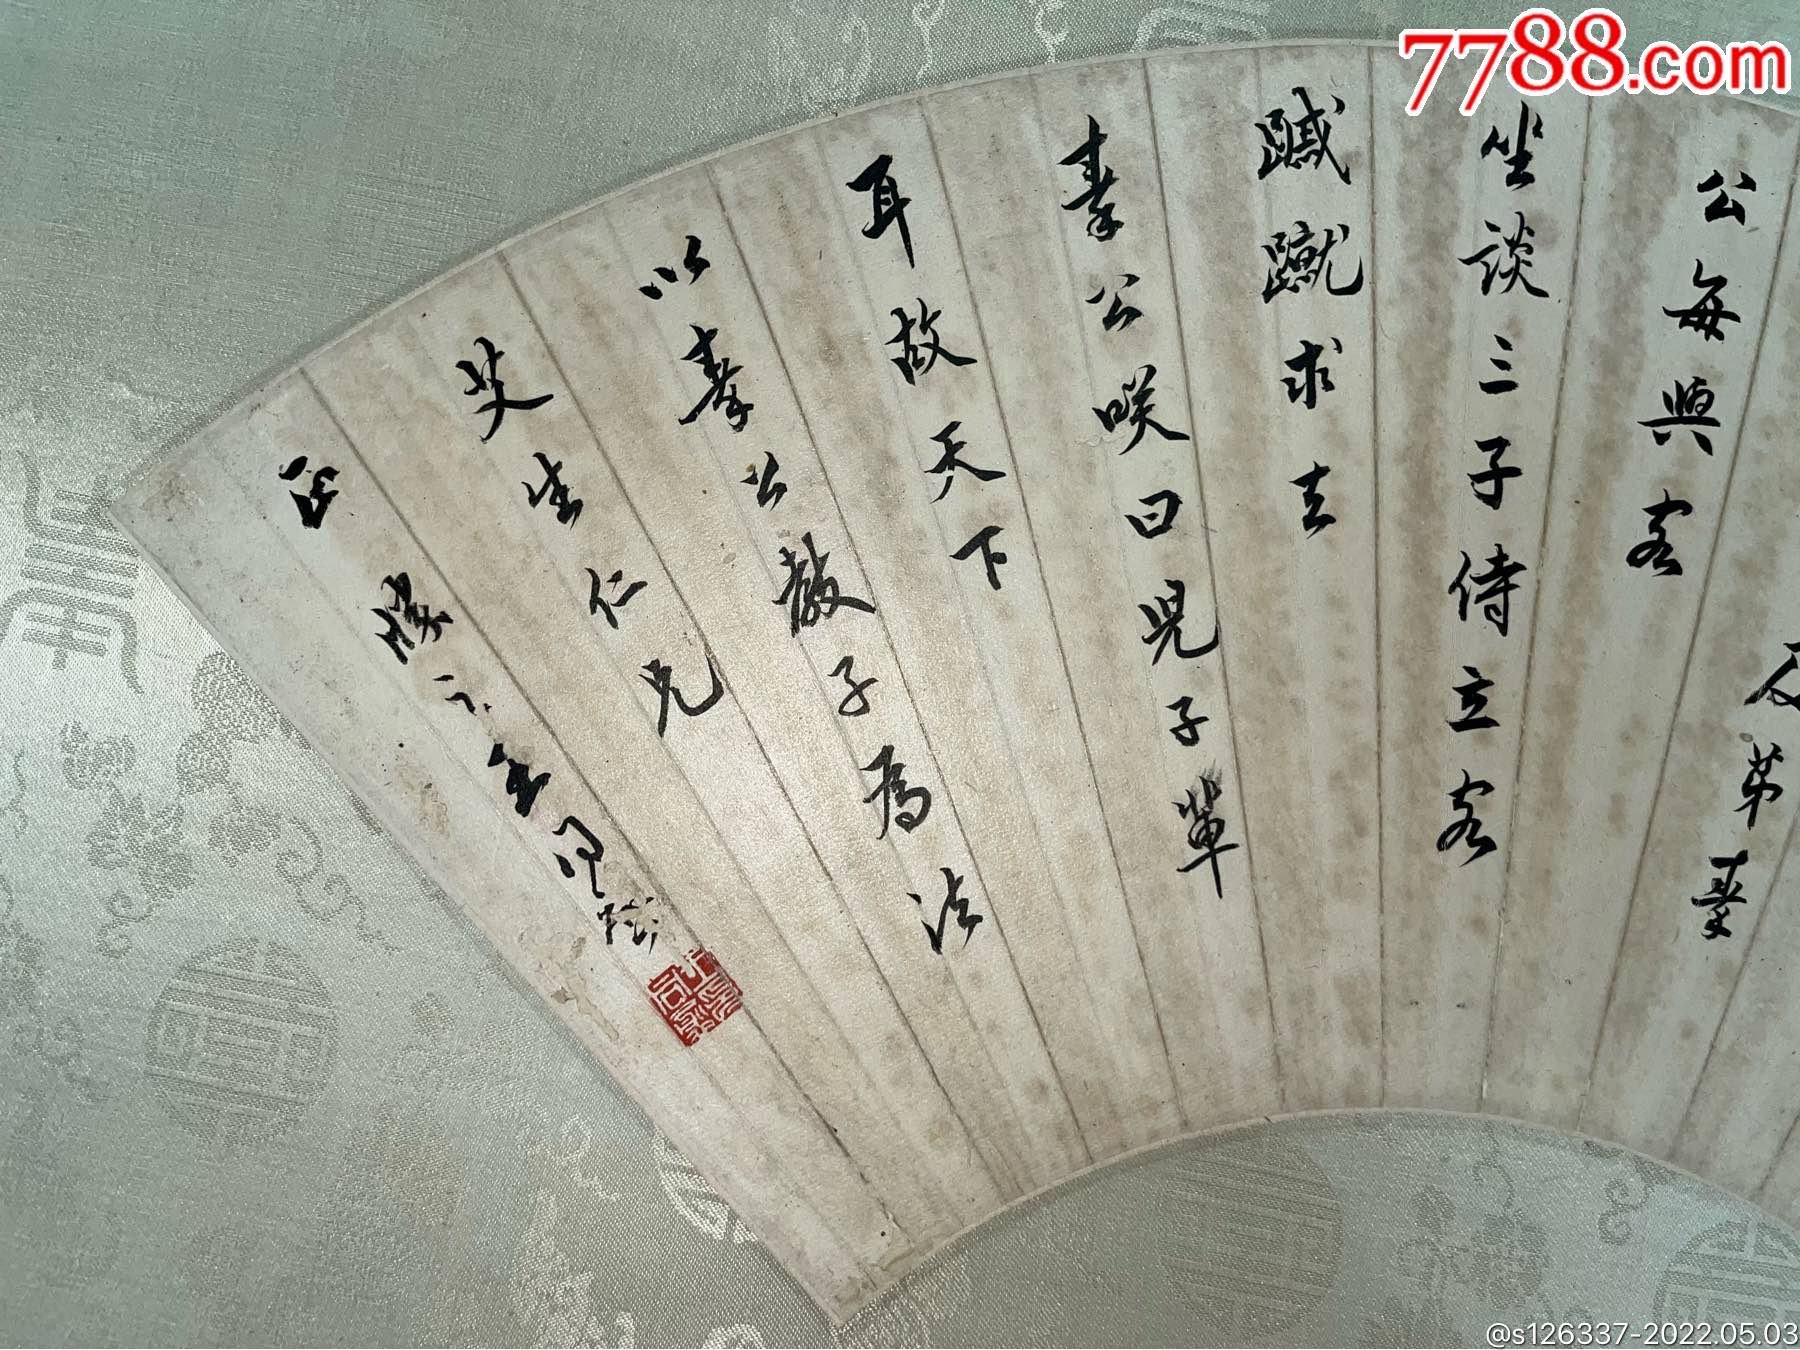 及第秦
公每與客
坐談三子侍立客
䠞蹴求去
秦公咲曰兒子輩
耳故天下
以秦公教子為法
生仁兄
正 王同
7788.com
@s126337-2022.05.03